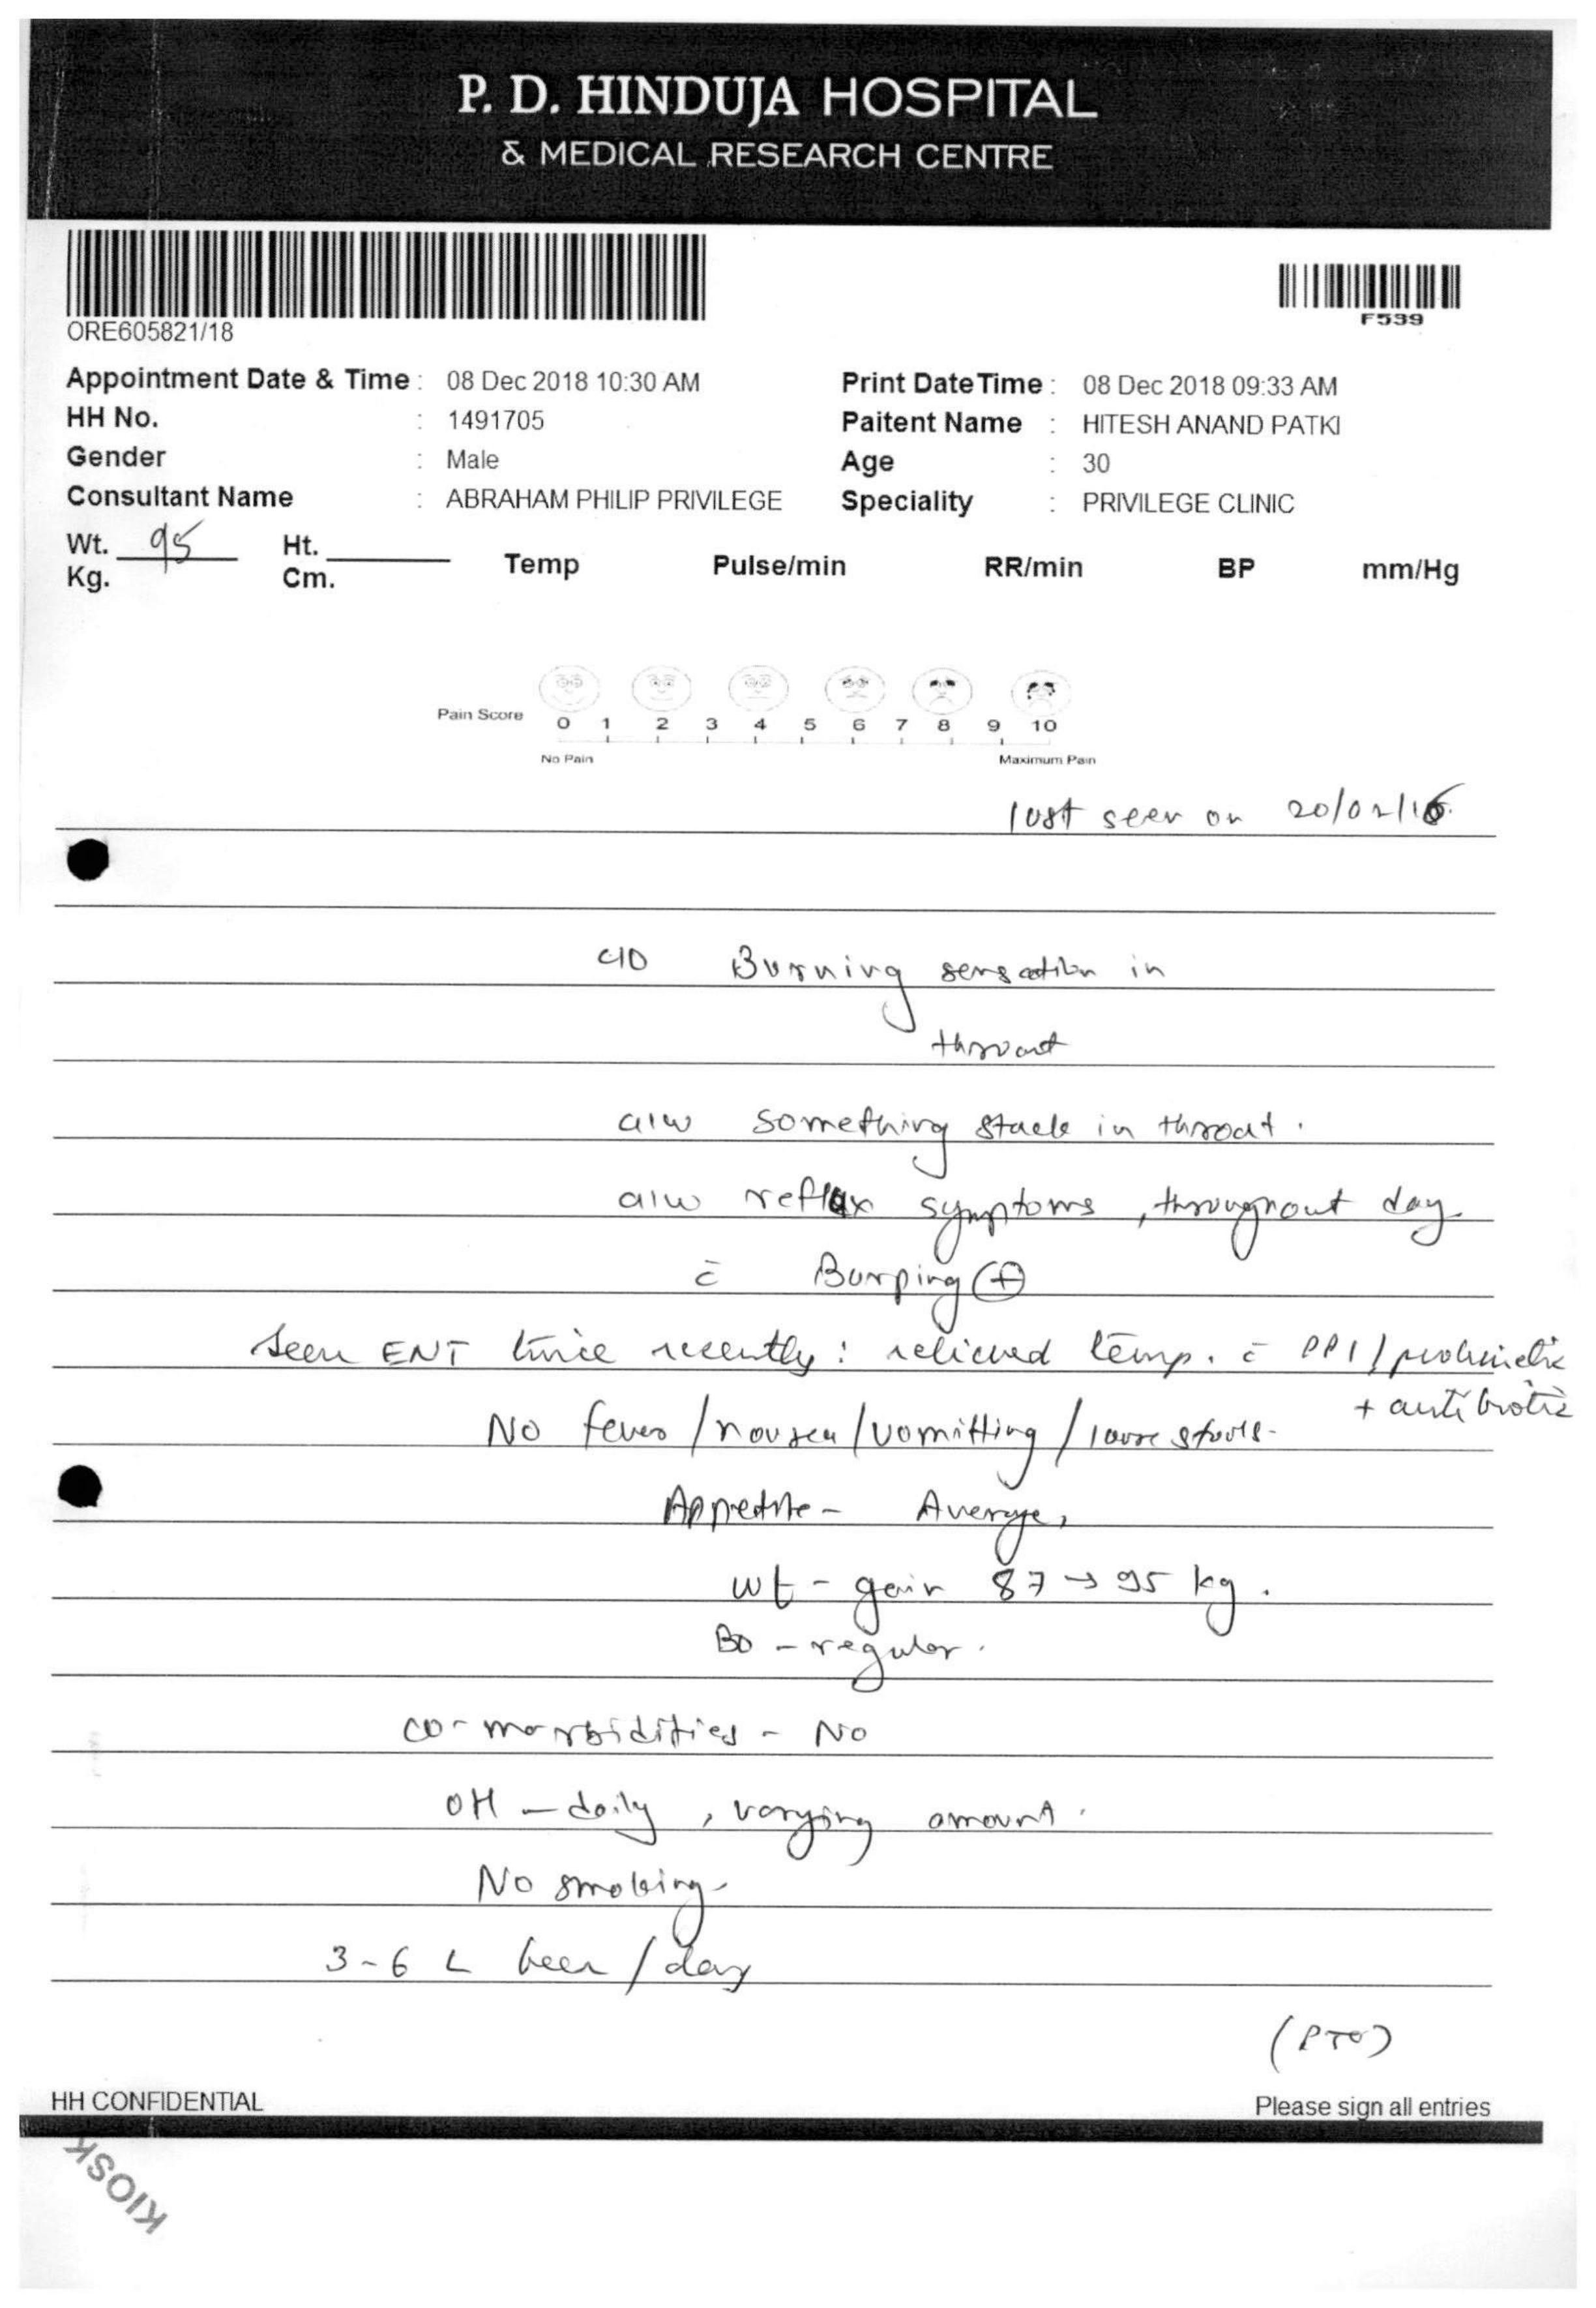 P. D. HINDUJA HOSPITAL
& MEDICAL RESEARCH CENTRE
ORE605821/18
F539
Appointment Date & Time : 08 Dec 2018 10:30 AM Print DateTime : 08 Dec 2018 09:33 AM
HH No. : 1491705 Paitent Name : HITESH ANAND PATKI
Gender : Male Age : 30
Consultant Name : ABRAHAM PHILIP PRIVILEGE Speciality : PRIVILEGE CLINIC
Wt. 95 Ht. Temp Pulse/min RR/min BP mm/Hg
Kg. Cm.
Pain Score 0 1 2 3 4 5 6 7 8 9 10
No Pain Maximum Pain
last seen on 20/02/16
c/o Burning sensation in
throat
a/w something stuck in throat.
a/w reflux symptoms, throughout day
c̄ Burping (+)
Seen ENT twice recently: relieved temp. c̄ PPI / prokinetic
+ antibiotic
No fever / nausea / vomitting / loose stools.
Appetite - Average,
wt - gain 87 → 95 kg.
BO - regular.
co-morbidities - No
OH - daily, varying amount.
No smoking.
3-6 L beer / day
(PTO)
HH CONFIDENTIAL Please sign all entries
KIOSK